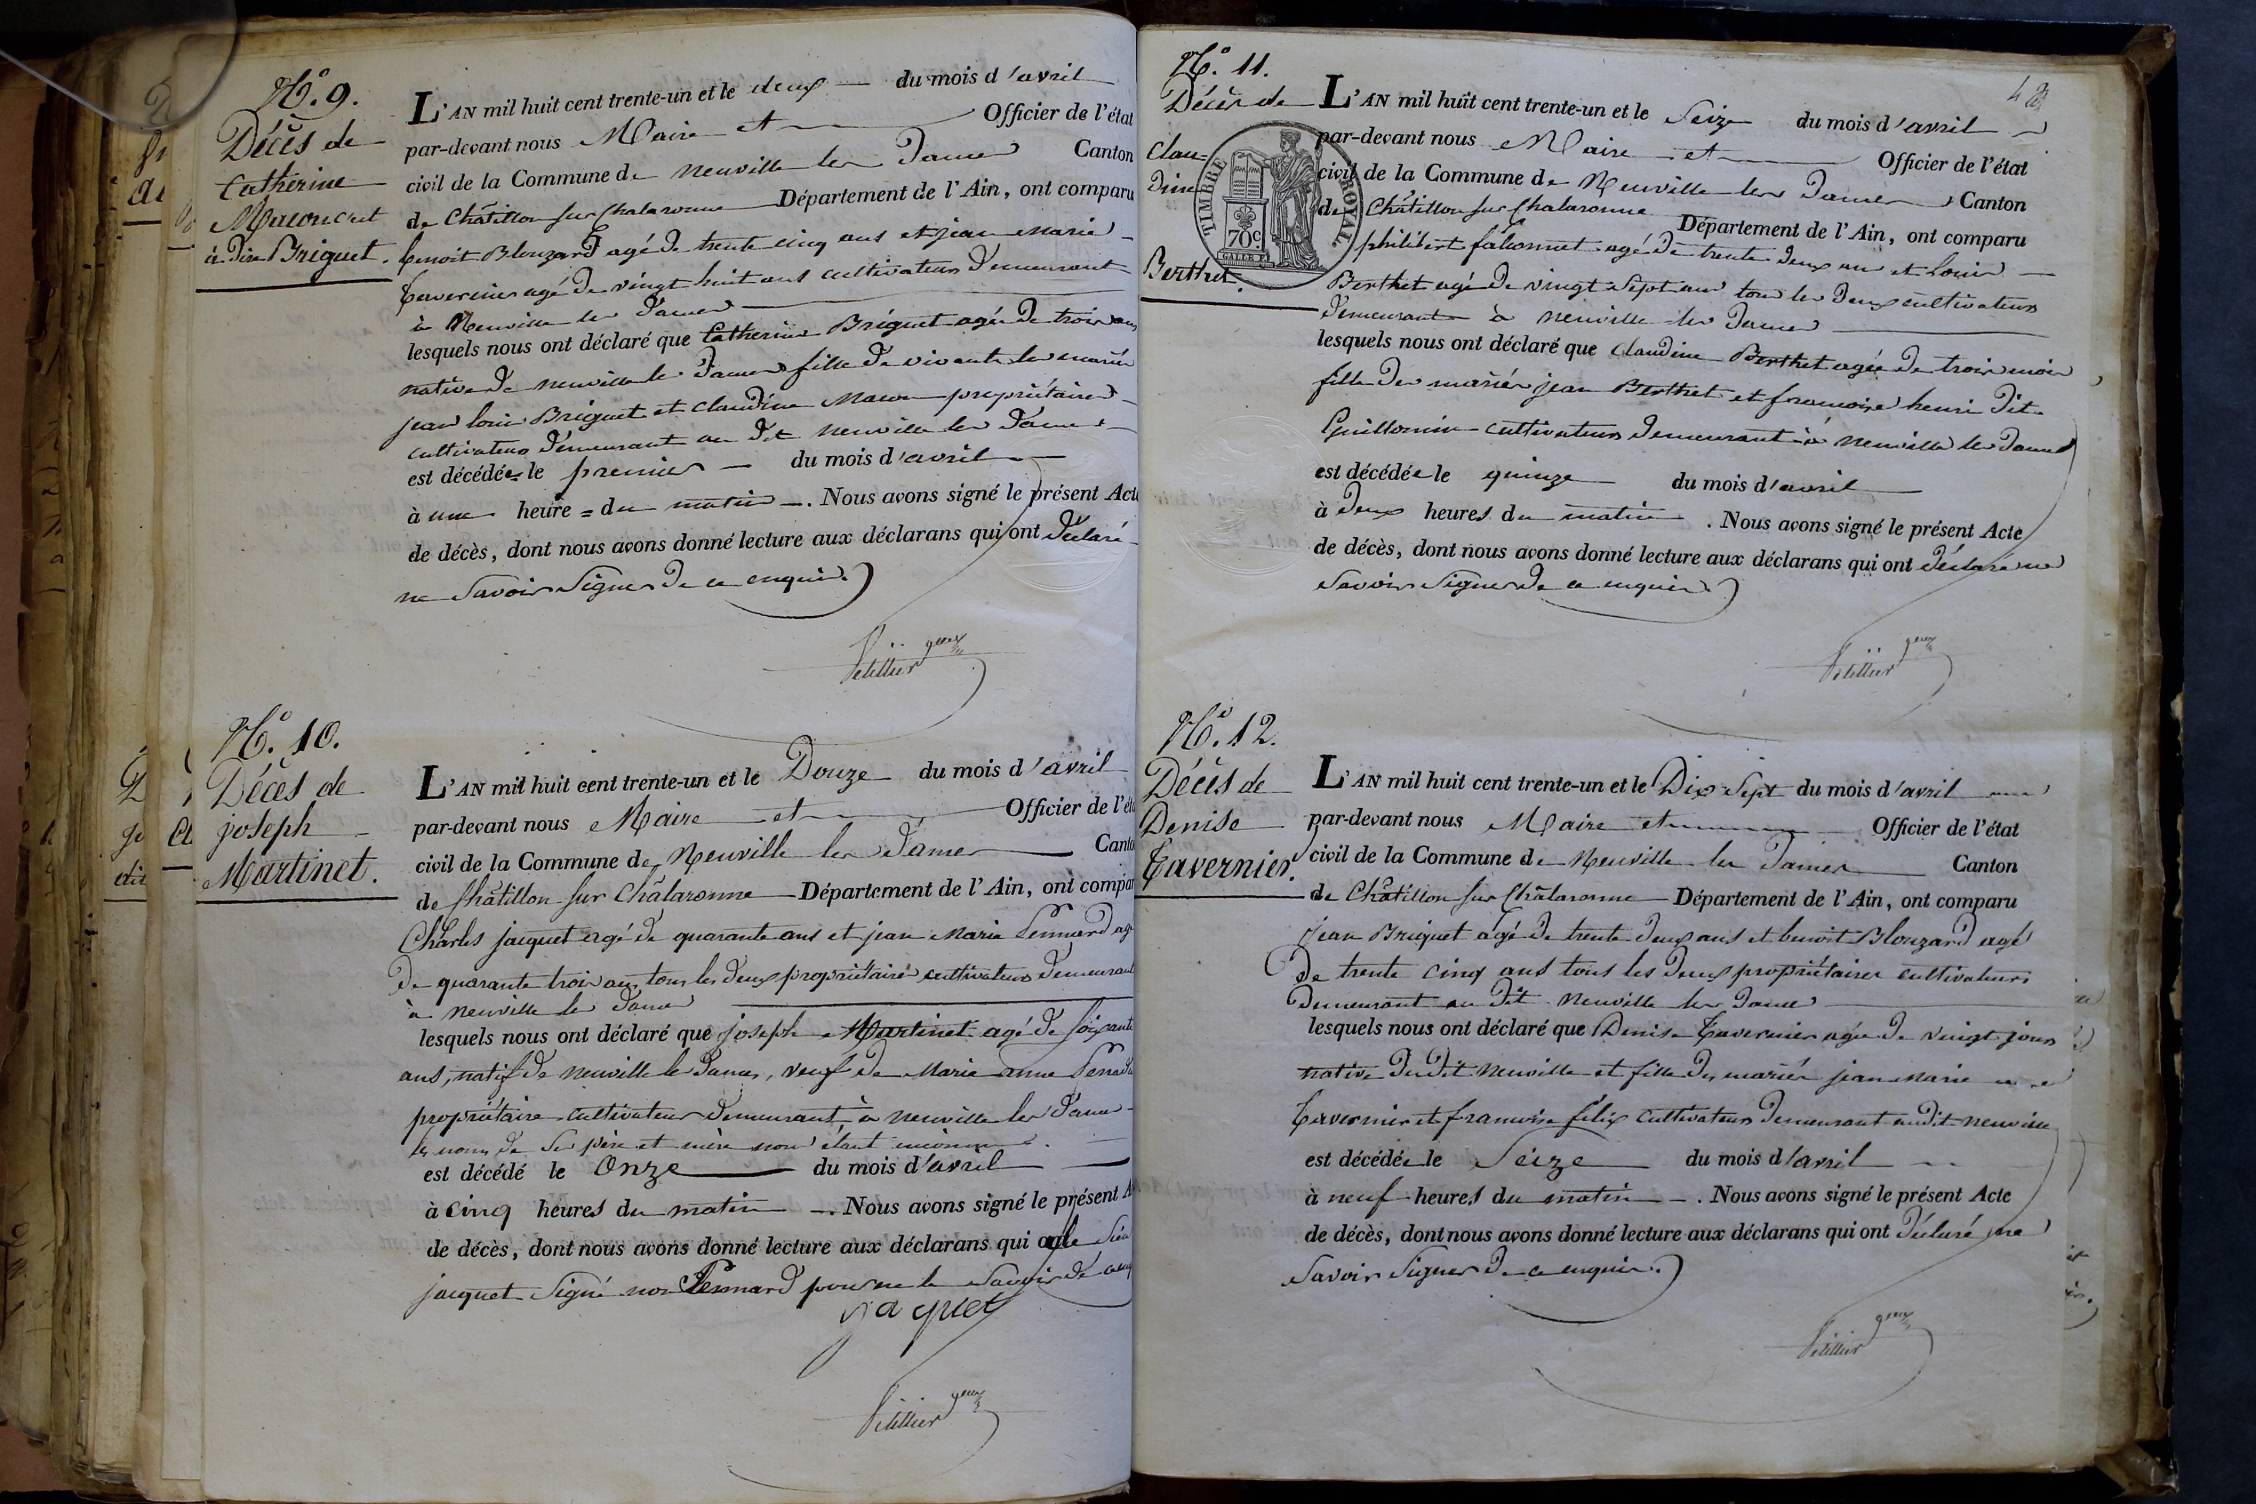 N.º 9.
Décès de
Catherine
Macon c'est
à dire Briguet.
L'AN mil huit cent trente-un et le deux du mois d'avril
par-devant nous Maire et Officier de l'état
civil de la Commune de Neuville les Dames Canton
de Châtillon sur Chalaronne Département de l'Ain, ont comparu
benoit Blouzard agé de trente cinq ans et jean Marie
tavernier agé de vingt huit ans cultivateurs demeurant
à Neuville les Dames
lesquels nous ont déclaré que Catherine Briguet agée de trois ans
native de neuville les Dames fille de vivants les mariés
jean louis Briguet et claudine Macon propriétaires
cultivateurs demeurant au dit neuville les Dames
est décédée le premier du mois d'avril
à une heure = du matin . Nous avons signé le présent Acte
de décès, dont nous avons donné lecture aux déclarans qui ont déclaré
ne Savoir Signer de ce enquis.
Petillier
N.º 10.
Décès de
joseph
Martinet.
L'AN mil huit cent trente-un et le Douze du mois d'avril
par-devant nous Maire et Officier de l'état
civil de la Commune de Neuville les Dames Canto
de Châtillon sur Châlaronne Département de l'Ain, ont compar
Charles jacquet agé de quarante ans et jean Marie Pennard agé
de quarante trois ans tous les deux propriétaires cultivateurs demeurant
à neuville les Dames
lesquels nous ont déclaré que joseph Martinet agé de soixante
ans, natif de neuville les Dames, veuf de Marie anne
propriétaire cultivateur demeurant à neuville les Dames
les noms de ses père et mère nous étant inconnus.
est décédé le Onze du mois d'avril
à cinq heures du matin . Nous avons signé le présent A
de décès, dont nous avons donné lecture aux déclarans qui ont le Sieur
jacquet Signé non Pennard pour ne le Savoir de
jaquet
Petillier
N.º 11.
Décès de
Clau=
dine
Berthet.
48
TIMBRE ROYAL.
70c
L'AN mil huit cent trente-un et le Seize du mois d'avril
par-devant nous Maire et Officier de l'état
civil de la Commune de Neuville les Dames Canton
de Châtillon sur Chalaronne Département de l'Ain, ont comparu
philibert falconnet agé de trente deux ans et Louis
Berthet agé de vingt Sept ans tous les deux cultivateurs
demeurant à neuville les Dames
lesquels nous ont déclaré que claudine Berthet agée de trois mois
fille des mariés jean Berthet et francoise henri dit
Guillomin cultivateurs demeurant à neuville les Dames
est décédée le quinze du mois d'avril
à deux heures du matin . Nous avons signé le présent Acte
de décès, dont nous avons donné lecture aux déclarans qui ont déclaré ne
Savoir Signer de ce enquis.
Petillier
N.º 12.
Décès de
Denise
Tavernier.
L'AN mil huit cent trente-un et le Dix Sept du mois d'avril
par-devant nous Maire et Officier de l'état
civil de la Commune de Neuville les Dames Canton
de Châtillon sur Châlaronne Département de l'Ain, ont comparu
jean Briguet agé de trente deux ans et benoit Blouzard agé
de trente cinq ans tous les deux propriétaires cultivateurs
Demeurant au dit neuville les Dames
lesquels nous ont déclaré que Denise Tavernier agée de vingt jours
native dudit Neuville et fille des mariés jean Marie
Tavernier et francoise félix cultivateurs demeurant audit neuville
est décédée le Seize du mois d'avril
à neuf heures du matin . Nous avons signé le présent Acte
de décès, dont nous avons donné lecture aux déclarans qui ont déclaré ne
Savoir Signer de ce enquis.
Petillier